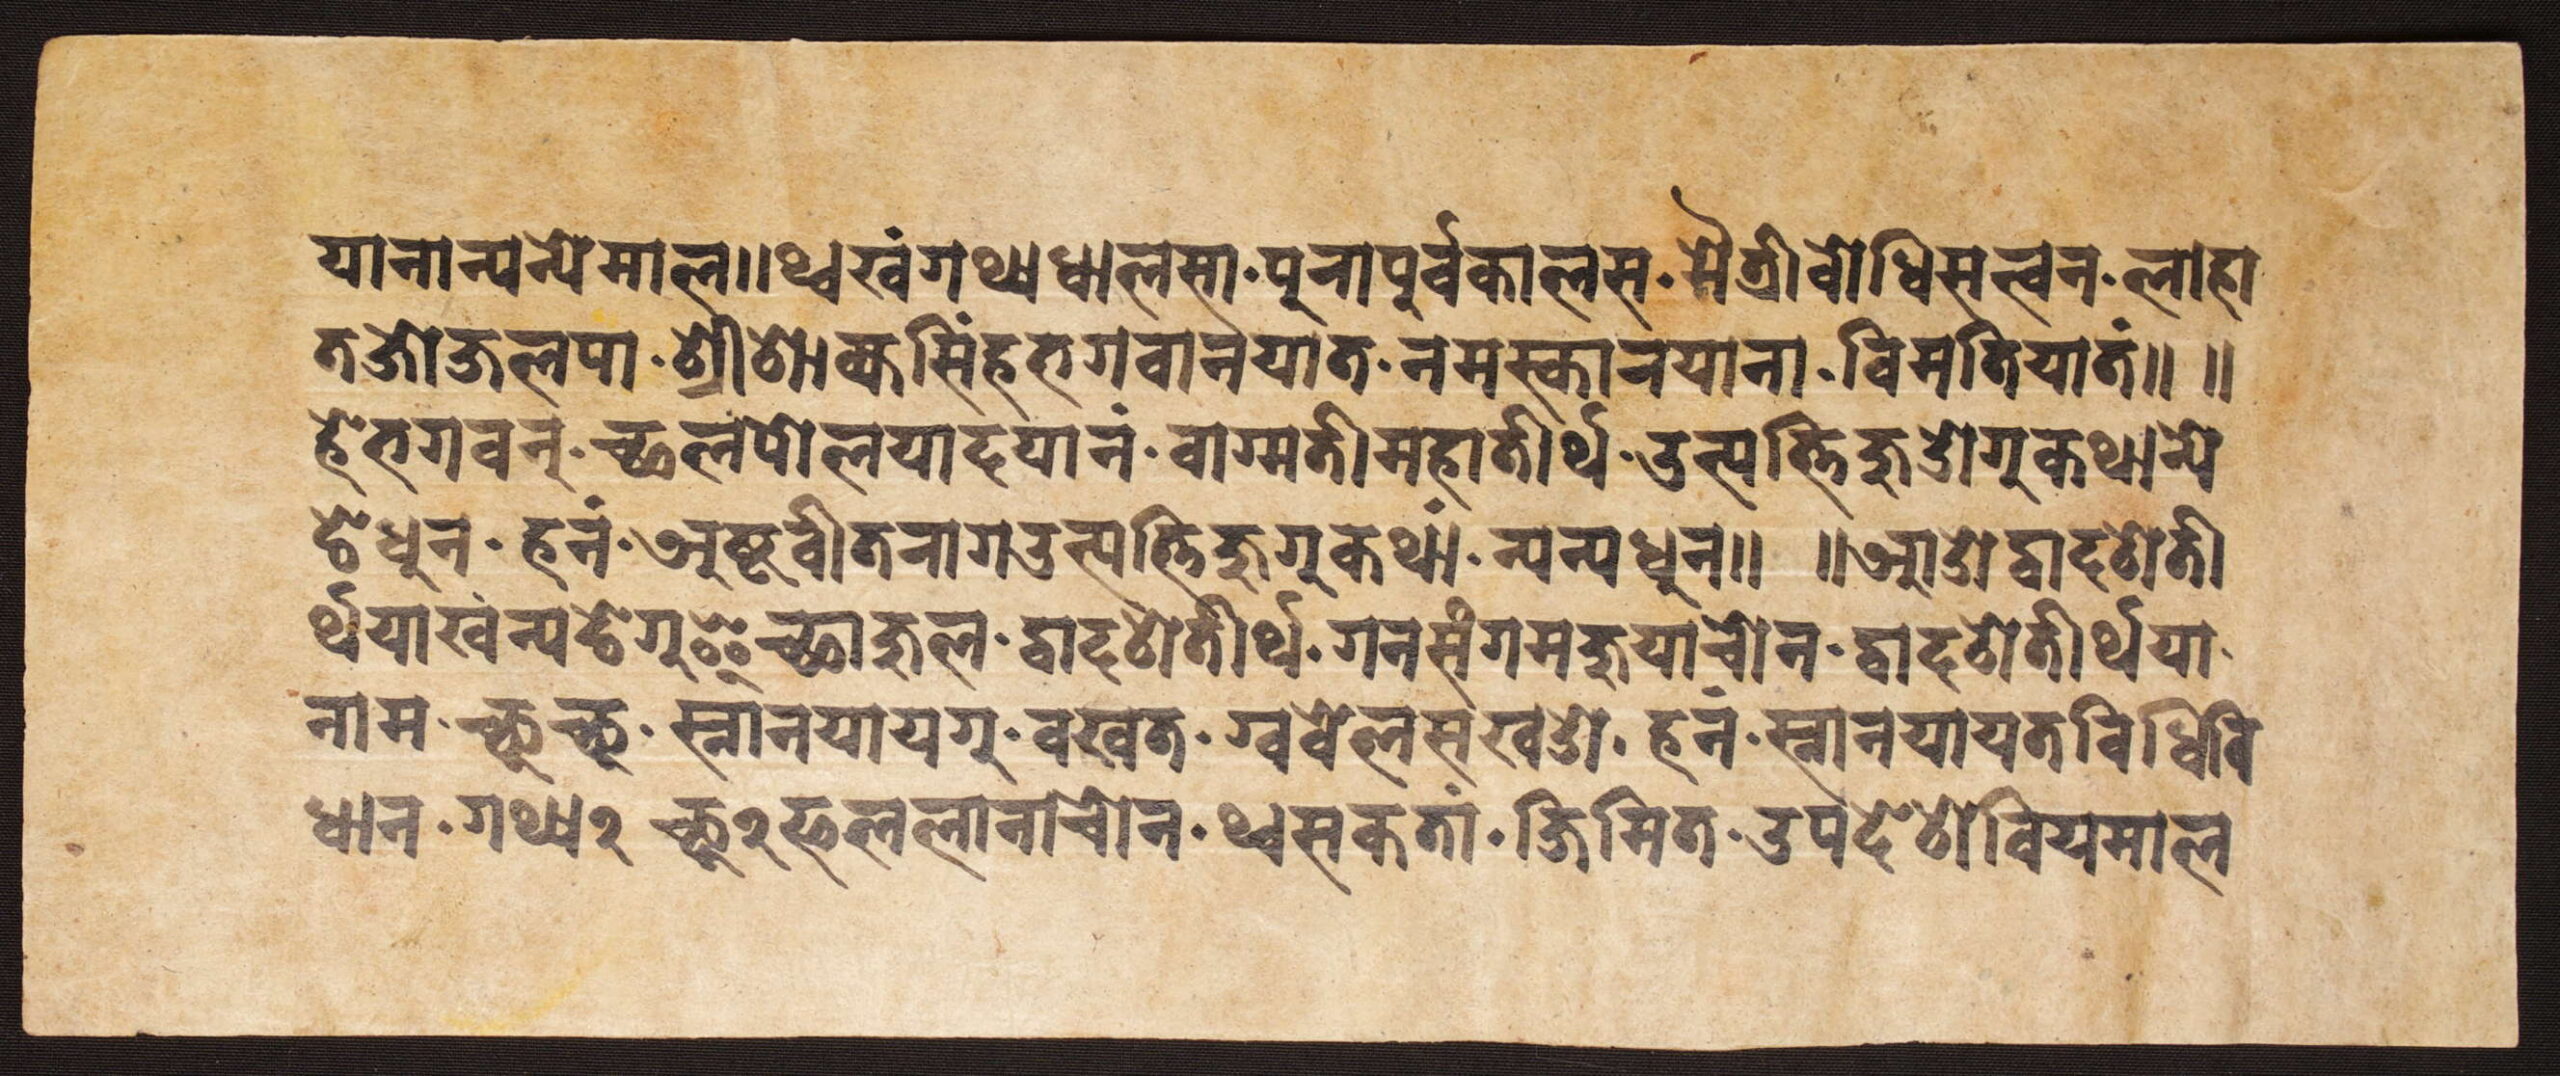 यानान्यन्येमाल॥थ्वखंगथ्यधालसा·पूरापूर्वकालस·मैत्रीवोधिसत्वन·लाहा
तजोजलपा·श्रीशाक्यसिंहभगवानयात·नमस्कारयाना·विमतियातं॥ ॥
हेभगवन्·च्छलपोलयादयानं·वाग्मतीमहातीर्थ·उत्पत्तिजुओगुकथान्ये
ङेधुन·हनं·अष्टवीतरागउत्पत्तिजुगुकथां·न्यन्यधुन॥ ॥आओद्वादशती
र्थयाखंन्यङेगुइच्छाजुल·द्वादशतीर्थ·गनसंगमजुयाचोन·द्वादशतीर्थया·
नाम·च्छूच्छू·स्नानयायगु·वखत·ग्ववेलसखओ·हनं·स्नानयायतविधिवि
धान·गथ्य२ च्छू२फललानाचोन·थ्वसकतां·जिमित·उपदेशवियमाल